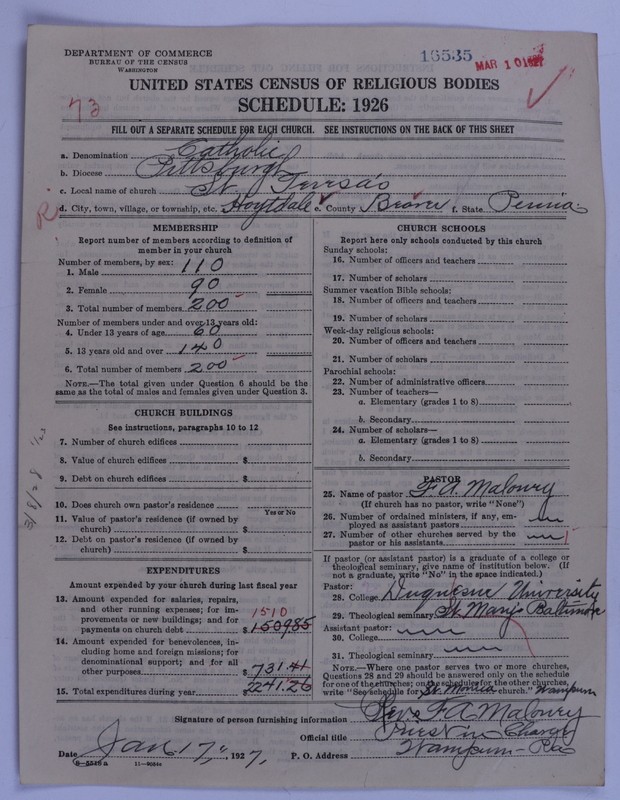 DEPARTMENT OF COMMERCE
BUREAU OF THE CENSUS
WASHINGTON
16535
MAR 10 1927
UNITED STATES CENSUS OF RELIGIOUS BODIES
SCHEDULE: 1926
73
FILL OUT A SEPARATE SCHEDULE FOR EACH CHURCH. SEE INSTRUCTIONS ON THE BACK OF THIS SHEET
a. Denomination Catholic
b. Diocese Pittsburgh
c. Local name of church St. Teresa's
d. City, town, village, or township, etc. Hoytdale e. County Beaver f. State Penna.
R
MEMBERSHIP
Report number of members according to definition of
member in your church
Number of members, by sex:
1. Male 110
2. Female 90
3. Total number of members 200
Number of members under and over 13 years old:
4. Under 13 years of age 60
5. 13 years old and over 140
6. Total number of members 200
NOTE.—The total given under Question 6 should be the
same as the total of males and females given under Question 3.
CHURCH BUILDINGS
See instructions, paragraphs 10 to 12
7. Number of church edifices
8. Value of church edifices $
9. Debt on church edifices $
10. Does church own pastor's residence
Yes or No
11. Value of pastor's residence (if owned by
church) $
12. Debt on pastor's residence (if owned by
church) $
EXPENDITURES
Amount expended by your church during last fiscal year
13. Amount expended for salaries, repairs,
and other running expenses; for im-
provements or new buildings; and for 1510
payments on church debt $ 1509.85
14. Amount expended for benevolences, in-
cluding home and foreign missions; for
denominational support; and for all
other purposes $ 731.41
15. Total expenditures during year $ 2241.26
CHURCH SCHOOLS
Report here only schools conducted by this church
Sunday schools:
16. Number of officers and teachers
17. Number of scholars
Summer vacation Bible schools:
18. Number of officers and teachers
19. Number of scholars
Week-day religious schools:
20. Number of officers and teachers
21. Number of scholars
Parochial schools:
22. Number of administrative officers
23. Number of teachers—
a. Elementary (grades 1 to 8)
b. Secondary
24. Number of scholars—
a. Elementary (grades 1 to 8)
b. Secondary
PASTOR
25. Name of pastor F. A. Maloney
(If church has no pastor, write "None")
26. Number of ordained ministers, if any, em-
ployed as assistant pastors
27. Number of other churches served by the
pastor or his assistants 1
If pastor (or assistant pastor) is a graduate of a college or
theological seminary, give name of institution below. (If
not a graduate, write "No" in the space indicated.)
Pastor:
28. College Duquesne University
29. Theological seminary St. Marys Baltimore
Assistant pastor:
30. College
31. Theological seminary
NOTE.—Where one pastor serves two or more churches,
Questions 28 and 29 should be answered only on the schedule
for one of the churches; on the schedules for the other churches,
write "See schedule for St. Monica church." Wampum
Signature of person furnishing information Rev. F A Maloney
Official title Priest in Charge
Date Jan. 17, 1927, P. O. Address Wampum - Pa
8-5546 a